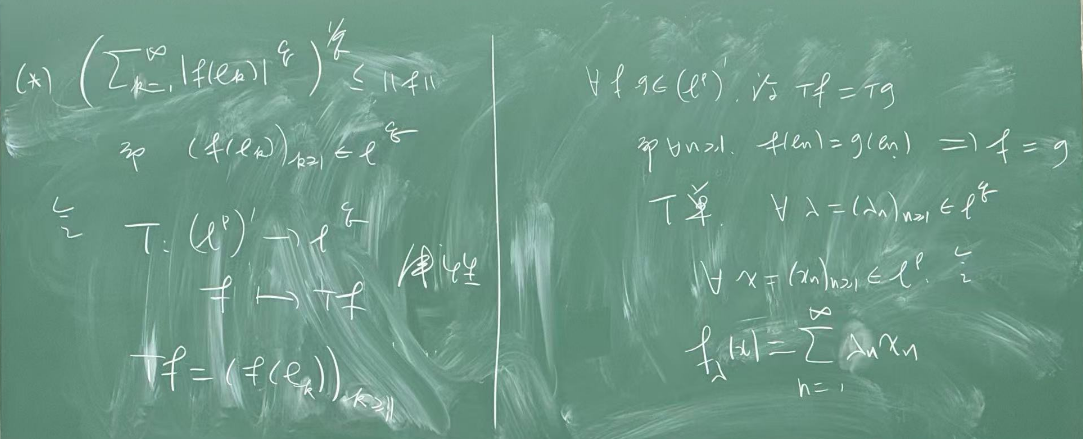 (*) (∑_{k=1}^∞ |f(e_k)|^q)^{1/q} ≤ ||f||
即 (f(e_k))_{k≥1} ∈ ℓ^q
令 T: (ℓ^p)' → ℓ^q
f ↦ Tf 线性
Tf = (f(e_k))_{k≥1}
∀ f, g ∈ (ℓ^p)'. 设 Tf = Tg
即 ∀n≥1. f(e_n) = g(e_n) ⟹ f = g
T 单. ∀ λ = (λ_n)_{n≥1} ∈ ℓ^q
∀ x = (x_n)_{n≥1} ∈ ℓ^p. 令
f_λ(x) = ∑_{n=1}^∞ λ_n x_n